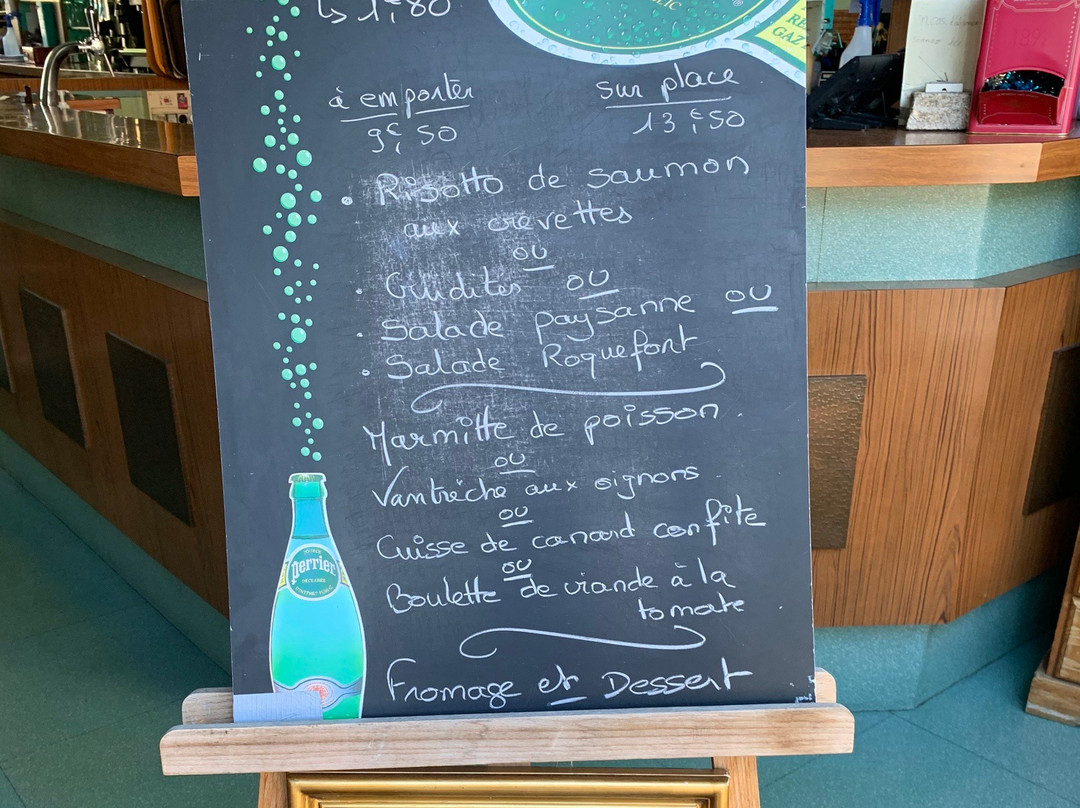 ↳ 1,80
RE
GAZ
à emporter
sur place
9€,50
13€,50
• Risotto de saumon
aux crevettes
ou
• Crudités ou
• Salade paysanne ou
• Salade Roquefort
Marmitte de poisson.
ou
Vantrèche aux oignons
ou
Cuisse de canard confite
ou
Boulette de viande à la
tomate
perrier
Fromage et Dessert